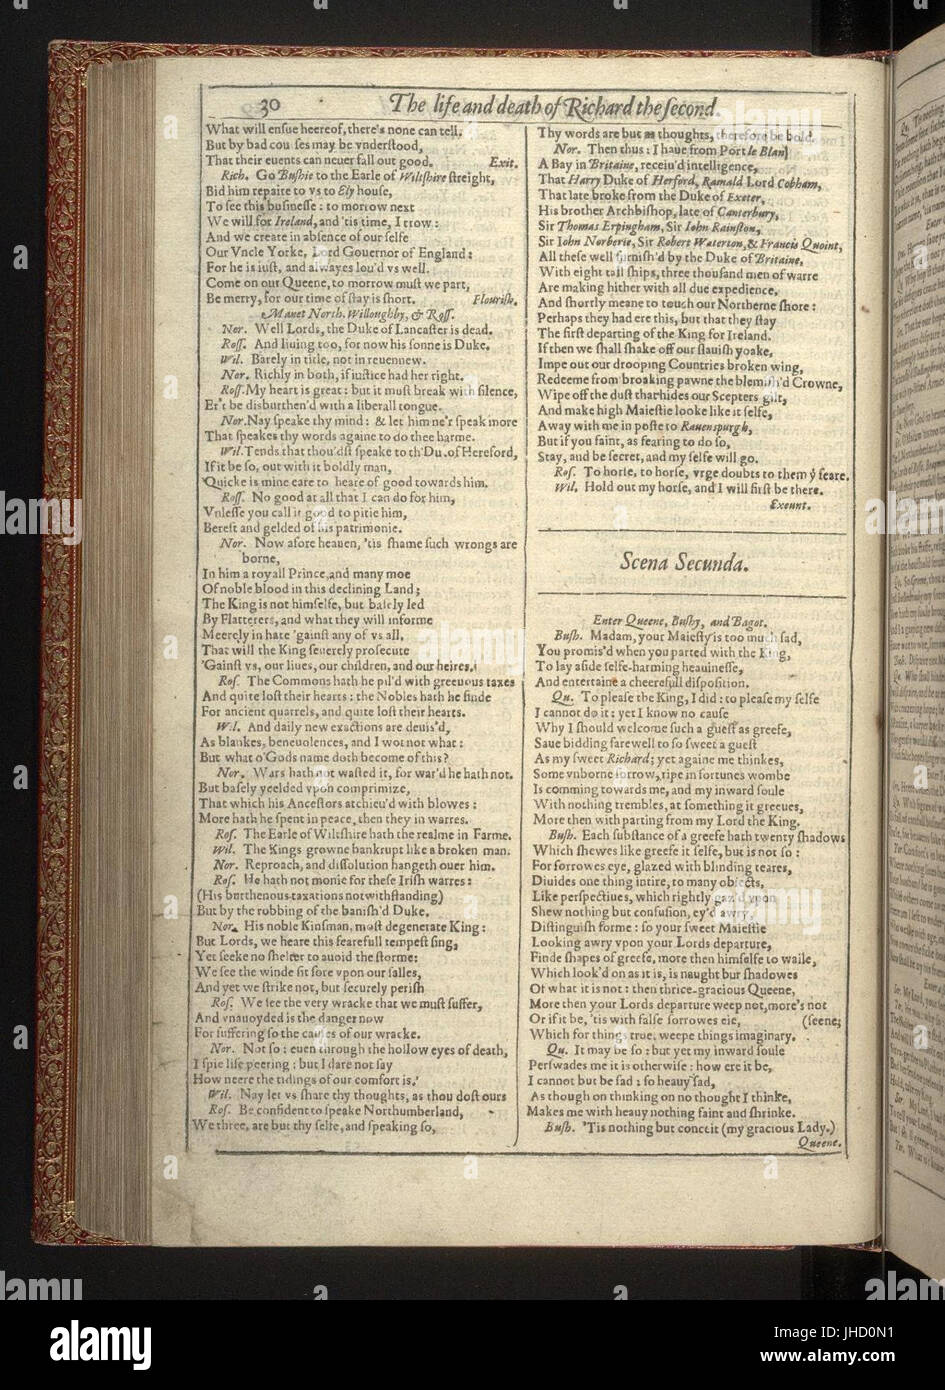 30
The life and death of Richard the second.
What will ensue heereof, there's none can tell.
But by bad courses may be vnderstood,
That their euents can neuer fall out good. Exit.
Rich. Go Bushie to the Earle of Wiltshire streight,
Bid him repaire to vs to Ely house,
To see this businesse: to morrow next
We will for Ireland, and 'tis time, I trow:
And we create in absence of our selfe
Our Vncle Yorke, Lord Gouernor of England:
For he is iust, and alwayes lou'd vs well.
Come on our Queene, to morrow must we part,
Be merry, for our time of stay is short. Flourish.
Manet North. Willoughby, & Ross.
Nor. Well Lords, the Duke of Lancaster is dead.
Ross. And liuing too, for now his sonne is Duke.
Wil. Barely in title, not in reuennew.
Nor. Richly in both, if iustice had her right.
Ross. My heart is great: but it must break with silence,
Er't be disburthen'd with a liberall tongue.
Nor. Nay speake thy mind: & let him ne'r speak more
That speakes thy words againe to do thee harme.
Wil. Tends that thou'dst speake to th'Du. of Hereford,
If it be so, out with it boldly man,
Quicke is mine eare to heare of good towards him.
Ross. No good at all that I can do for him,
Vnlesse you call it good to pitie him,
Bereft and gelded of his patrimonie.
Nor. Now afore heauen, 'tis shame such wrongs are
borne,
In him a royall Prince, and many moe
Of noble blood in this declining Land;
The King is not himselfe, but basely led
By Flatterers, and what they will informe
Meerely in hate 'gainst any of vs all,
That will the King seuerely prosecute
'Gainst vs, our liues, our children, and our heires.
Ros. The Commons hath he pil'd with greeuous taxes
And quite lost their hearts: the Nobles hath he finde
For ancient quarrels, and quite lost their hearts.
Wil. And daily new exactions are deuis'd,
As blankes, beneuolences, and I wot not what:
But what o'Gods name doth become of this?
Nor. Wars hath not wasted it, for war'd he hath not.
But basely yeelded vpon comprimize,
That which his Ancestors atchieu'd with blowes:
More hath he spent in peace, then they in warres.
Ros. The Earle of Wiltshire hath the realme in Farme.
Wil. The Kings growne bankrupt like a broken man.
Nor. Reproach, and dissolution hangeth ouer him.
Ros. He hath not monie for these Irish warres:
(His burthenous taxations notwithstanding)
But by the robbing of the banish'd Duke.
Nor. His noble Kinsman, most degenerate King:
But Lords, we heare this fearefull tempest sing,
Yet seeke no shelter to auoid the storme:
We see the winde sit sore vpon our salles,
And yet we strike not, but securely perish
Ros. We see the very wracke that we must suffer,
And vnauoyded is the danger now
For suffering so the causes of our wracke.
Nor. Not so: euen through the hollow eyes of death,
I spie life peering: but I dare not say
How neere the tidings of our comfort is.
Wil. Nay let vs share thy thoughts, as thou dost ours
Ros. Be confident to speake Northumberland,
We three, are but thy selfe, and speaking so,
Thy words are but as thoughts, therefore be bold.
Nor. Then thus: I haue from Port le Blan
A Bay in Britaine, receiu'd intelligence,
That Harry Duke of Herford, Rainald Lord Cobham,
That late broke from the Duke of Exeter,
His brother Archbishop, late of Canterbury,
Sir Thomas Erpingham, Sir Iohn Rainston,
Sir Iohn Norberie, Sir Robert Waterton, & Francis Quoint,
All these well furnish'd by the Duke of Britaine,
With eight tall ships, three thousand men of warre
Are making hither with all due expedience,
And shortly meane to touch our Northerne shore:
Perhaps they had ere this, but that they stay
The first departing of the King for Ireland.
If then we shall shake off our slauish yoake,
Impe out our drooping Countries broken wing,
Redeeme from broaking pawne the blemish'd Crowne,
Wipe off the dust that hides our Scepters gilt,
And make high Maiestie looke like it selfe,
Away with me in poste to Rauenspurgh,
But if you faint, as fearing to do so,
Stay, and be secret, and my selfe will go.
Ros. To horse, to horse, vrge doubts to them yͭ feare.
Wil. Hold out my horse, and I will first be there.
Exeunt.
Scena Secunda.
Enter Queene, Bushy, and Bagot.
Bush. Madam, your Maiesty is too much sad,
You promis'd when you parted with the King,
To lay aside selfe-harming heauinesse,
And entertaine a cheerefull disposition.
Qu. To please the King, I did: to please my selfe
I cannot do it: yet I know no cause
Why I should welcome such a guest as greefe,
Saue bidding farewell to so sweet a guest
As my sweet Richard; yet againe me thinkes,
Some vnborne sorrow, ripe in fortunes wombe
Is comming towards me, and my inward soule
With nothing trembles, at something it greeues,
More then with parting from my Lord the King.
Bush. Each substance of a greefe hath twenty shadows
Which shewes like greefe it selfe, but is not so:
For sorrowes eye, glazed with blinding teares,
Diuides one thing intire, to many obiects,
Like perspectiues, which rightly gaz'd vpon
Shew nothing but confusion, ey'd awry,
Distinguish forme: so your sweet Maiestie
Looking awry vpon your Lords departure,
Finde shapes of greefe, more then himselfe to waile,
Which look'd on as it is, is naught bur shadowes
Of what it is not: then thrice-gracious Queene,
More then your Lords departure weep not, more's not
Or if it be, 'tis with false sorrowes eie, (seene;
Which for things true, weepe things imaginary.
Qu. It may be so: but yet my inward soule
Perswades me it is otherwise: how ere it be,
I cannot but be sad: so heauy sad,
As though on thinking on no thought I thinke,
Makes me with heauy nothing faint and shrinke.
Bush. 'Tis nothing but conceit (my gracious Lady.)
Queene.
alamy
Image ID: JHD0N1
www.alamy.com